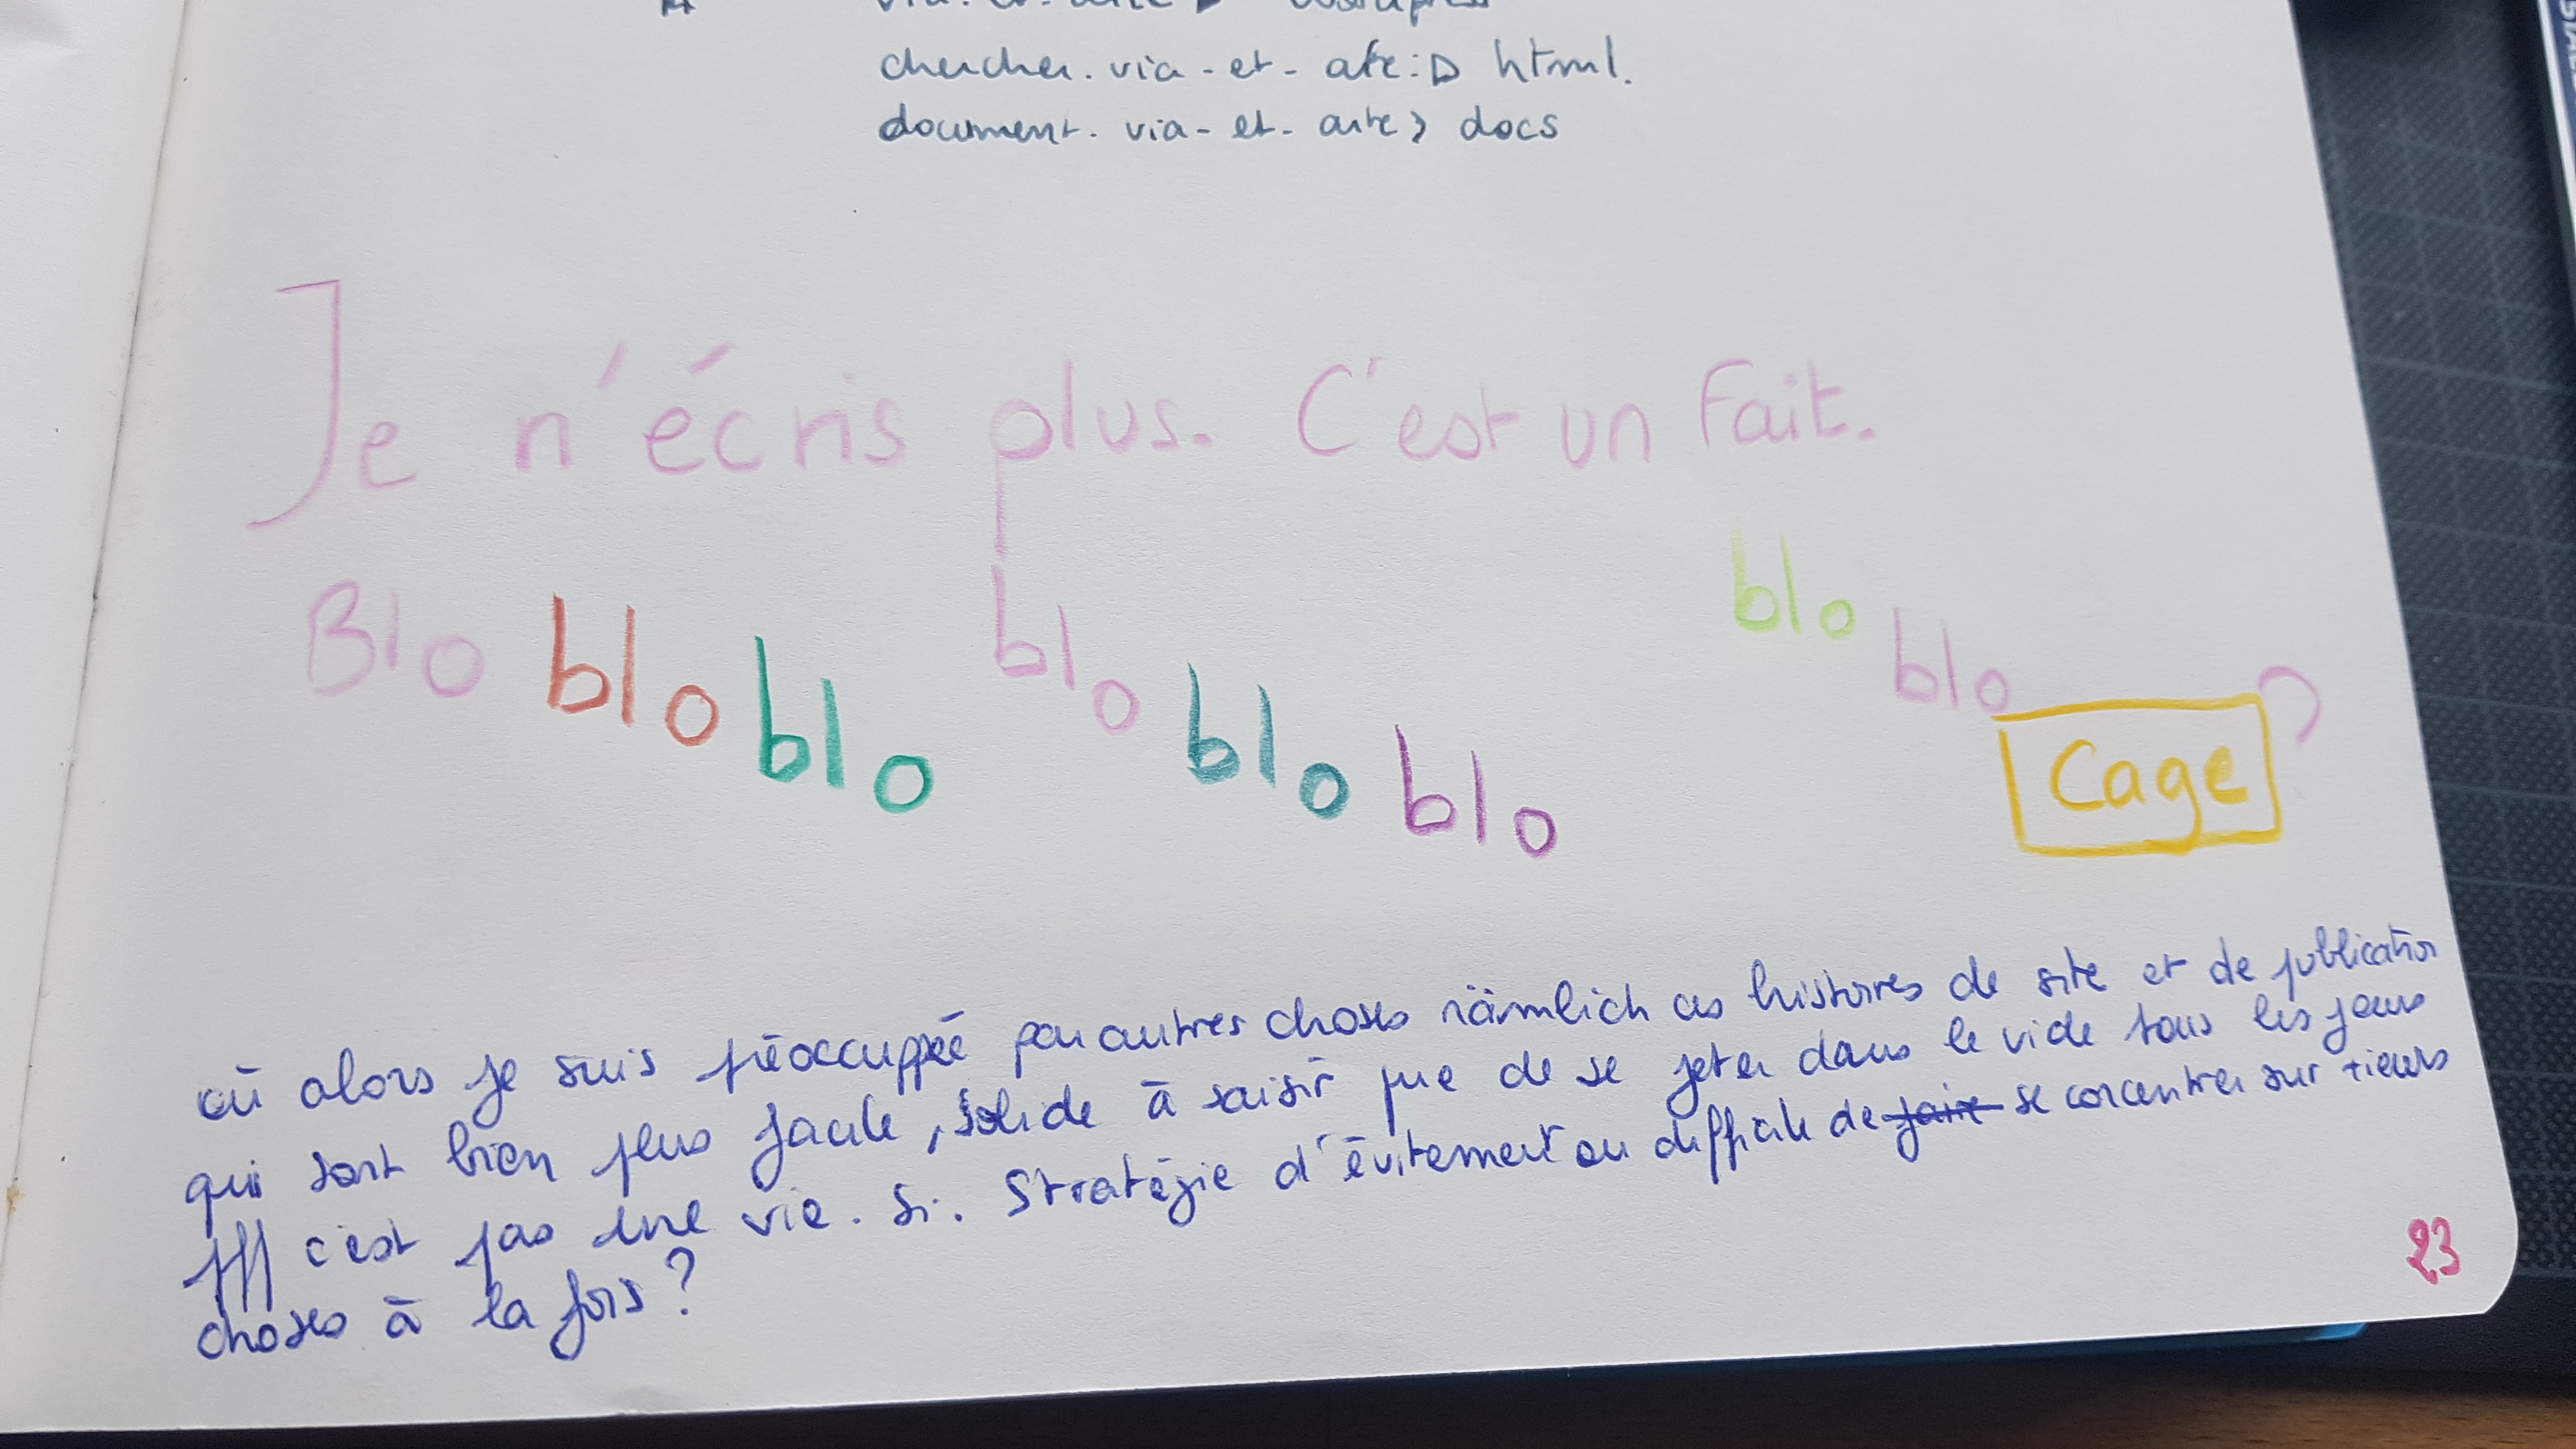 via-et-arte ▷ wordpress
chercher. via-et-arte: ▷ html.
document. via-et-arte > docs
Je n'écris plus. C'est un fait.
Blo blo blo blo blo blo blo blo Cage ?
où alors je suis préoccuppée par autres choses nämlich ces histoires de site et de publication
qui sont bien plus facile, solide à saisir que de se jeter dans le vide tous les jours
pfff c'est pas une vie. Si. Stratégie d'évitement ou difficile de faire se concentrer sur
choses à la fois ?
23